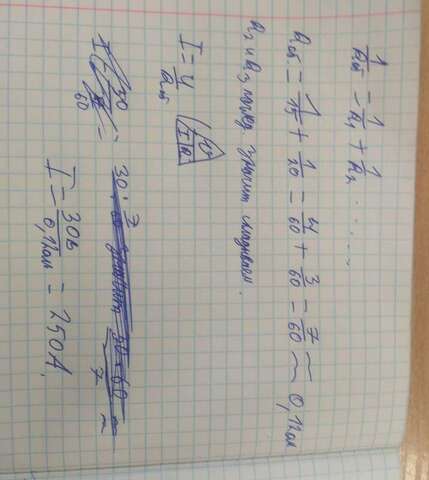 1/Rоб = 1/R1 + 1/R2 .......
Rоб = 1/15 + 1/20 = 4/60 + 3/60 = 7/60 ≈ 0,12 Ом
R2 и R3 послед значит складываем.
I = U/Rоб
U I R
I = 30в/0,12ом = 250А,